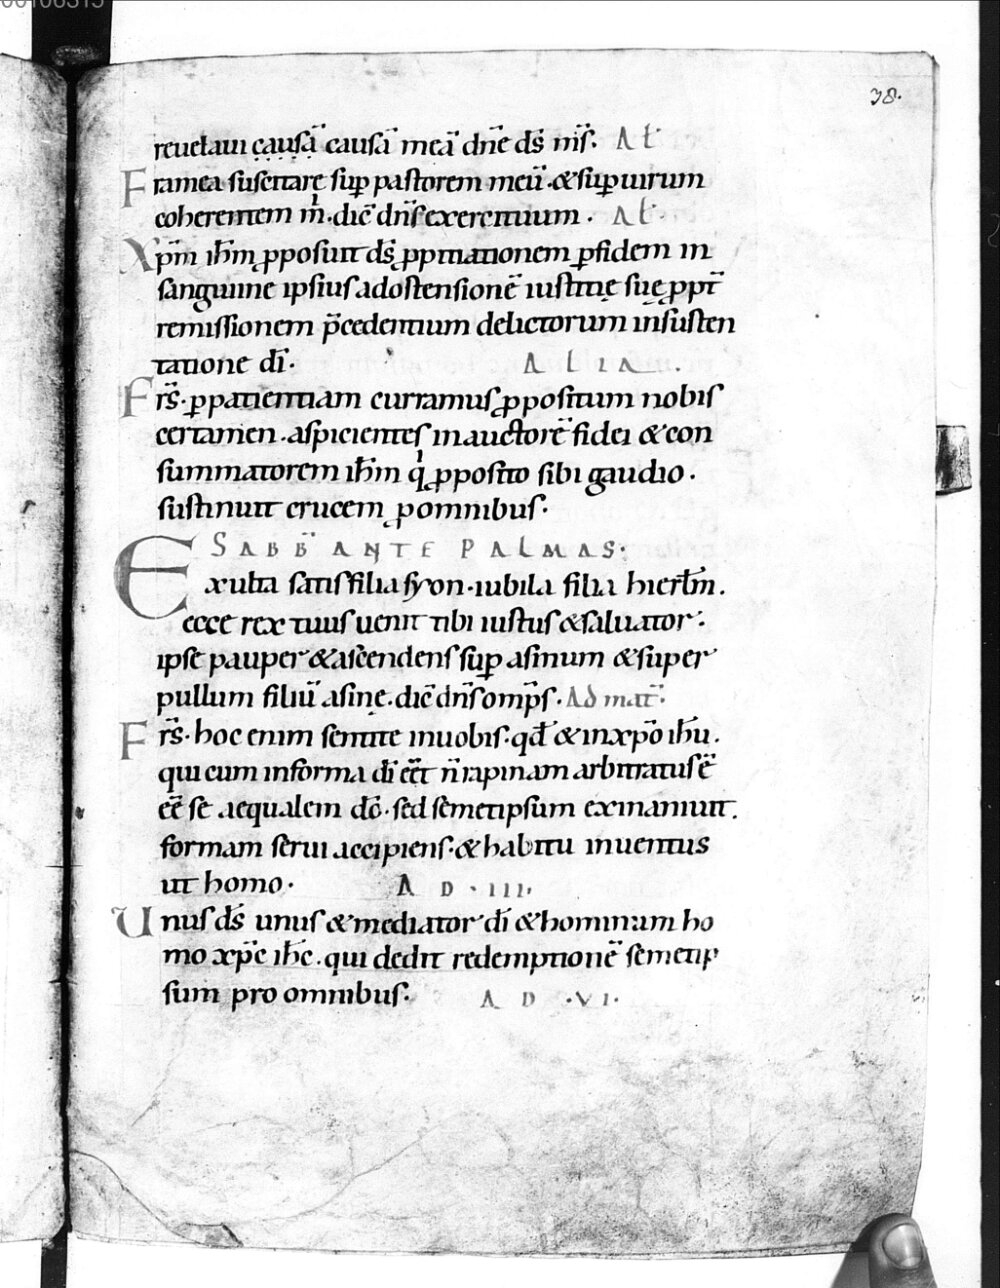 38.
reuelaui causã causã meã dñe ds̃ ms̃. Al̃
Framea suscitare sup̱ pastorem meũ. & sup̱ uirum
coherentem m̃. dic̃ dñs exercituum. Al̃
Xp̃m ih̃m p̱posuit ds̃ p̱pitiationem p̱ fidem in
sanguine ipsius ad ostensionẽ iustitię suę p̱pt̃
remissionem p̃cedentium delictorum in susten
tatione dĩ. ALIA.
Frs̃. p̱ patientiam curramus p̱positum nobis
certamen. aspicientes in auctorẽ fidei & con
summatorem ih̃m q̃ p̱posito sibi gaudio.
sustinuit crucem p̱ omnibus.
SABB̃ ANTE PALMAS.
Exulta satis filia syon. iubila filia hierl̃m.
ecce rex tuus uenit tibi iustus & saluator.
ipse pauper & ascendens sup̱ asinum & super
pullum filiũ asinę. dic̃ dñs omp̃s. Ad mat̃.
Frs̃. hoc enim sentite in uobis. qd̃ & in xp̃o ih̃u.
qui cum in forma dĩ eẽt ñ rapinam arbitratus ẽ
eẽ se aequalem dõ. sed semetipsum exinaniuit.
formam serui accipiens. & habitu inuentus
ut homo. AD .III.
Unus ds̃ unus & mediator dĩ & hominum ho
mo xp̃c ih̃c. qui dedit redemptionẽ semetip
sum pro omnibus. AD .VI.